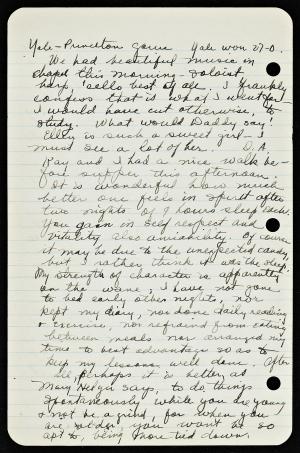 Yale-Princeton game Yale won 27-0.
We had beautiful music in
chapel this morning - soloist
harp, 'cello best of all. I frankly
confess that is what I went for
I would have cut otherwise, to
study. What would Daddy say?
Ellen is such a sweet girl - I
must see a lot of her. D.A.
Kay and I had a nice walk be-
fore supper this afternoon.
It is wonderful how much
better one feels in spirit after
two nights of 9 hours sleep each.
You gain in self respect and
vitality also amiability. Of course
it may be due to the unexpected candy,
but I rather think it was the sleep.
My strength of character is apparently
on the wane; I have not gone
to bed early other nights, nor
kept my diary, nor done daily reading
& exercise, nor refrained from eating
between meals nor arranged my
time to best advantage so as to
have my lessons well done. After
all perhaps it is better, as
Mary Helen says, to do things
spontaneously while you are young
& not be a grind, for when you
are older you won't be so
apt to, being more tied down.